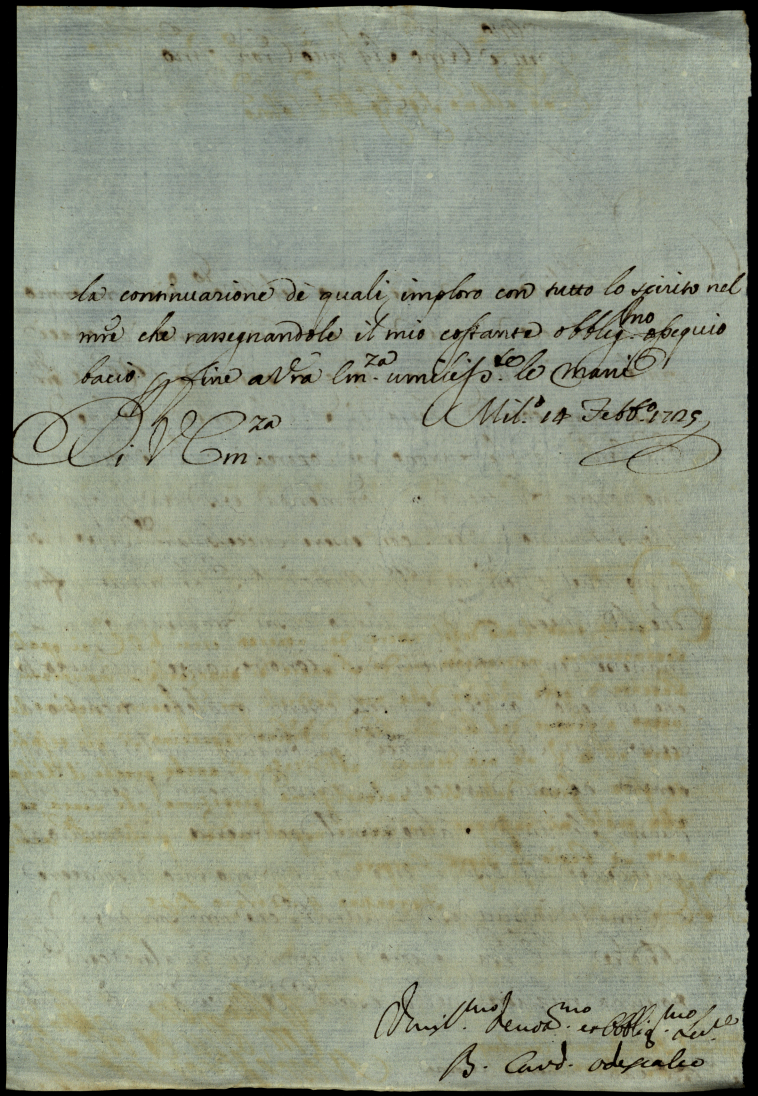 la continuazione de quali imploro con tutto lo spirito nel
mre che rassegnandole il mio costante obblig.mo ossequio
bacio per fine a Vra Em.za umilisso.te le mani
Mil.o 14 Febb.o 1725
Di V. Em.za
Umil.mo Devot.mo et Obblig.mo Ser.e
B. Card. Odescalco